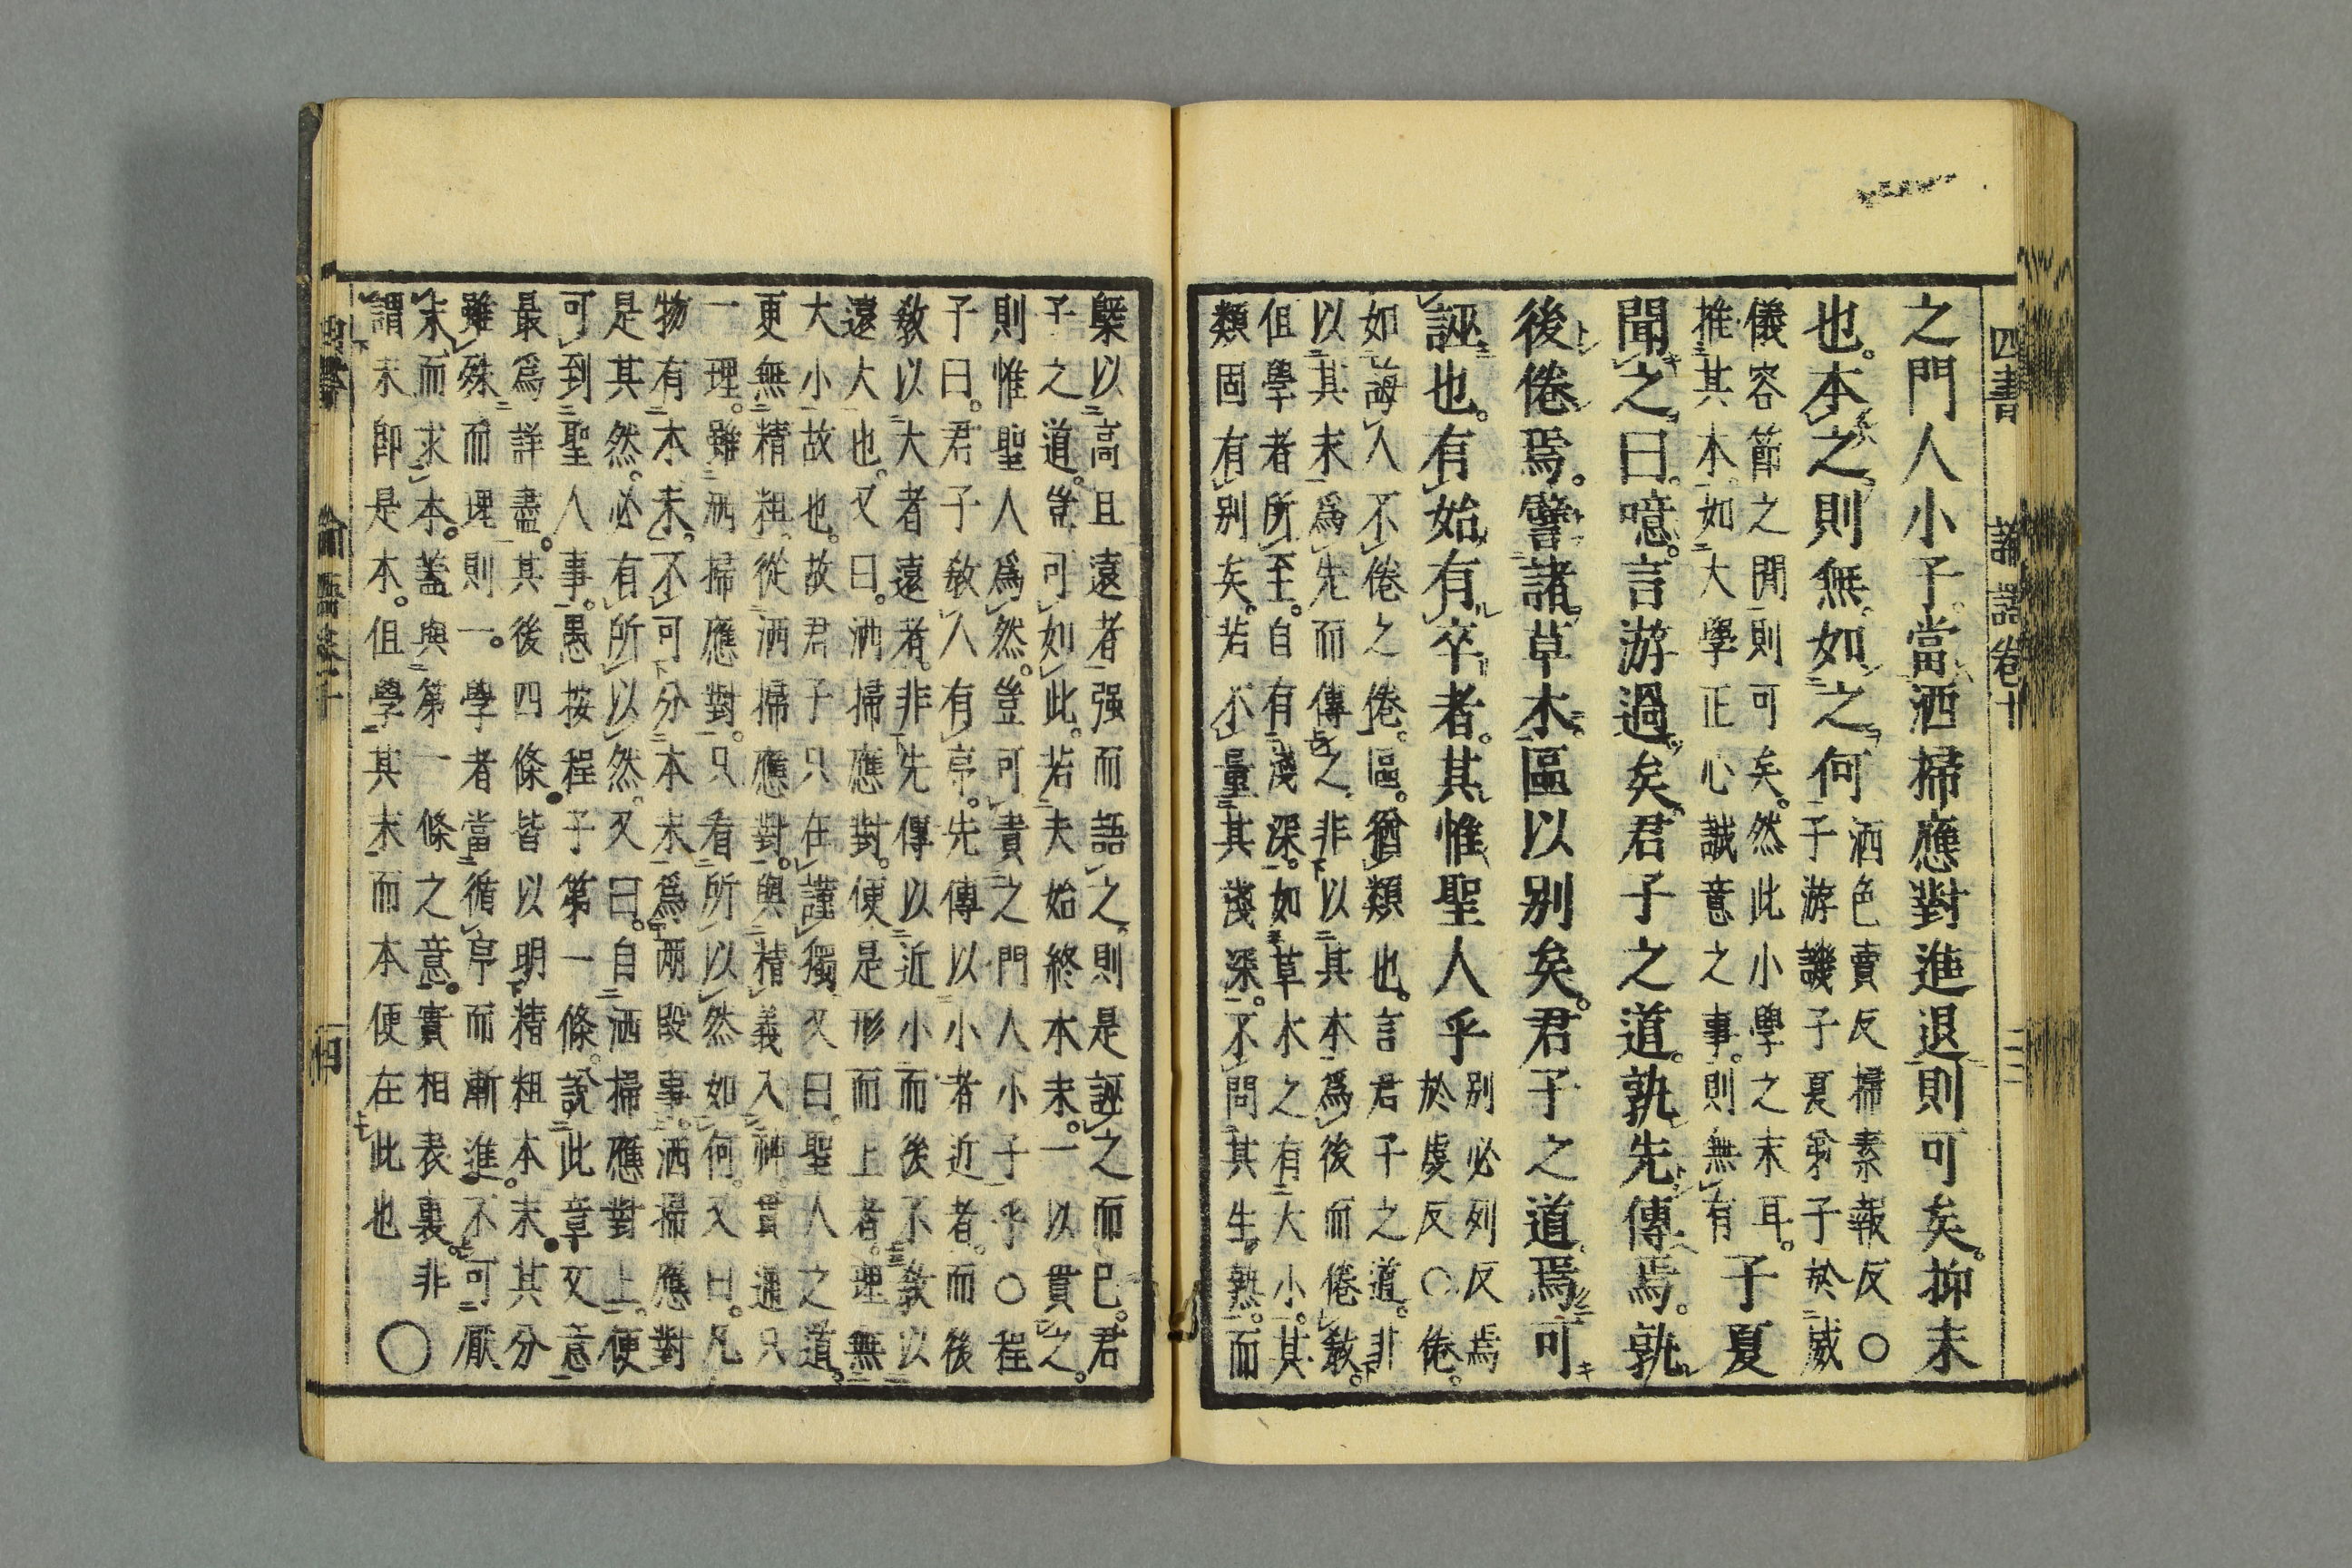 四書 論語卷十
之門人小子當洒掃應對進退則可矣。抑末
也。本之則無。如之何
洒色賣反掃素報反○
子游譏子夏弟子於威
儀容節之閒則可矣。然此小學之末耳。
推其本。如大學正心誠意之事。則無有
子夏
聞之曰。噫。言游過矣。君子之道。孰先傳焉。孰
後倦焉。譬諸草木。區以別矣。君子之道焉可
誣也。有始有卒者。其惟聖人乎
別必列反焉
於虔反○倦。
如誨人不倦之倦。區。猶類也。言君子之道。非
以其末爲先而傳之。非以其本爲後而倦教。
但學者所至。自有淺深。如草木之有大小。其
類固有別矣。若不量其淺深。不問其生熟。而
槩以高且遠者强而語之。則是誣之而已。君
子之道。豈可如此。若夫始終本末。一以貫之。
則惟聖人爲然。豈可責之門人小子乎○程
子曰。君子敎人有序。先傳以小者近者。而後
敎以大者遠者。非先傳以近小。而後不敎以
遠大也。又曰。洒掃應對。便是形而上者。理無
大小故也。故君子只在謹獨。又曰。聖人之道。
更無精粗。從洒掃應對。與精義入神。貫通只
一理。雖洒掃應對。只看所以然如何。又曰。凡
物有本末。不可分本末爲兩段事。洒掃應對
是其然。必有所以然。又曰。自洒掃應對上。便
可到聖人事。愚按程子第一條。說此章文意
最爲詳盡。其後四條。皆以明精粗本末。其分
雖殊。而理則一。學者當循序而漸進。不可厭
末而求本。蓋與第一條之意。實相表裏。非
謂末卽是本。但學其末而本便在此也 ○